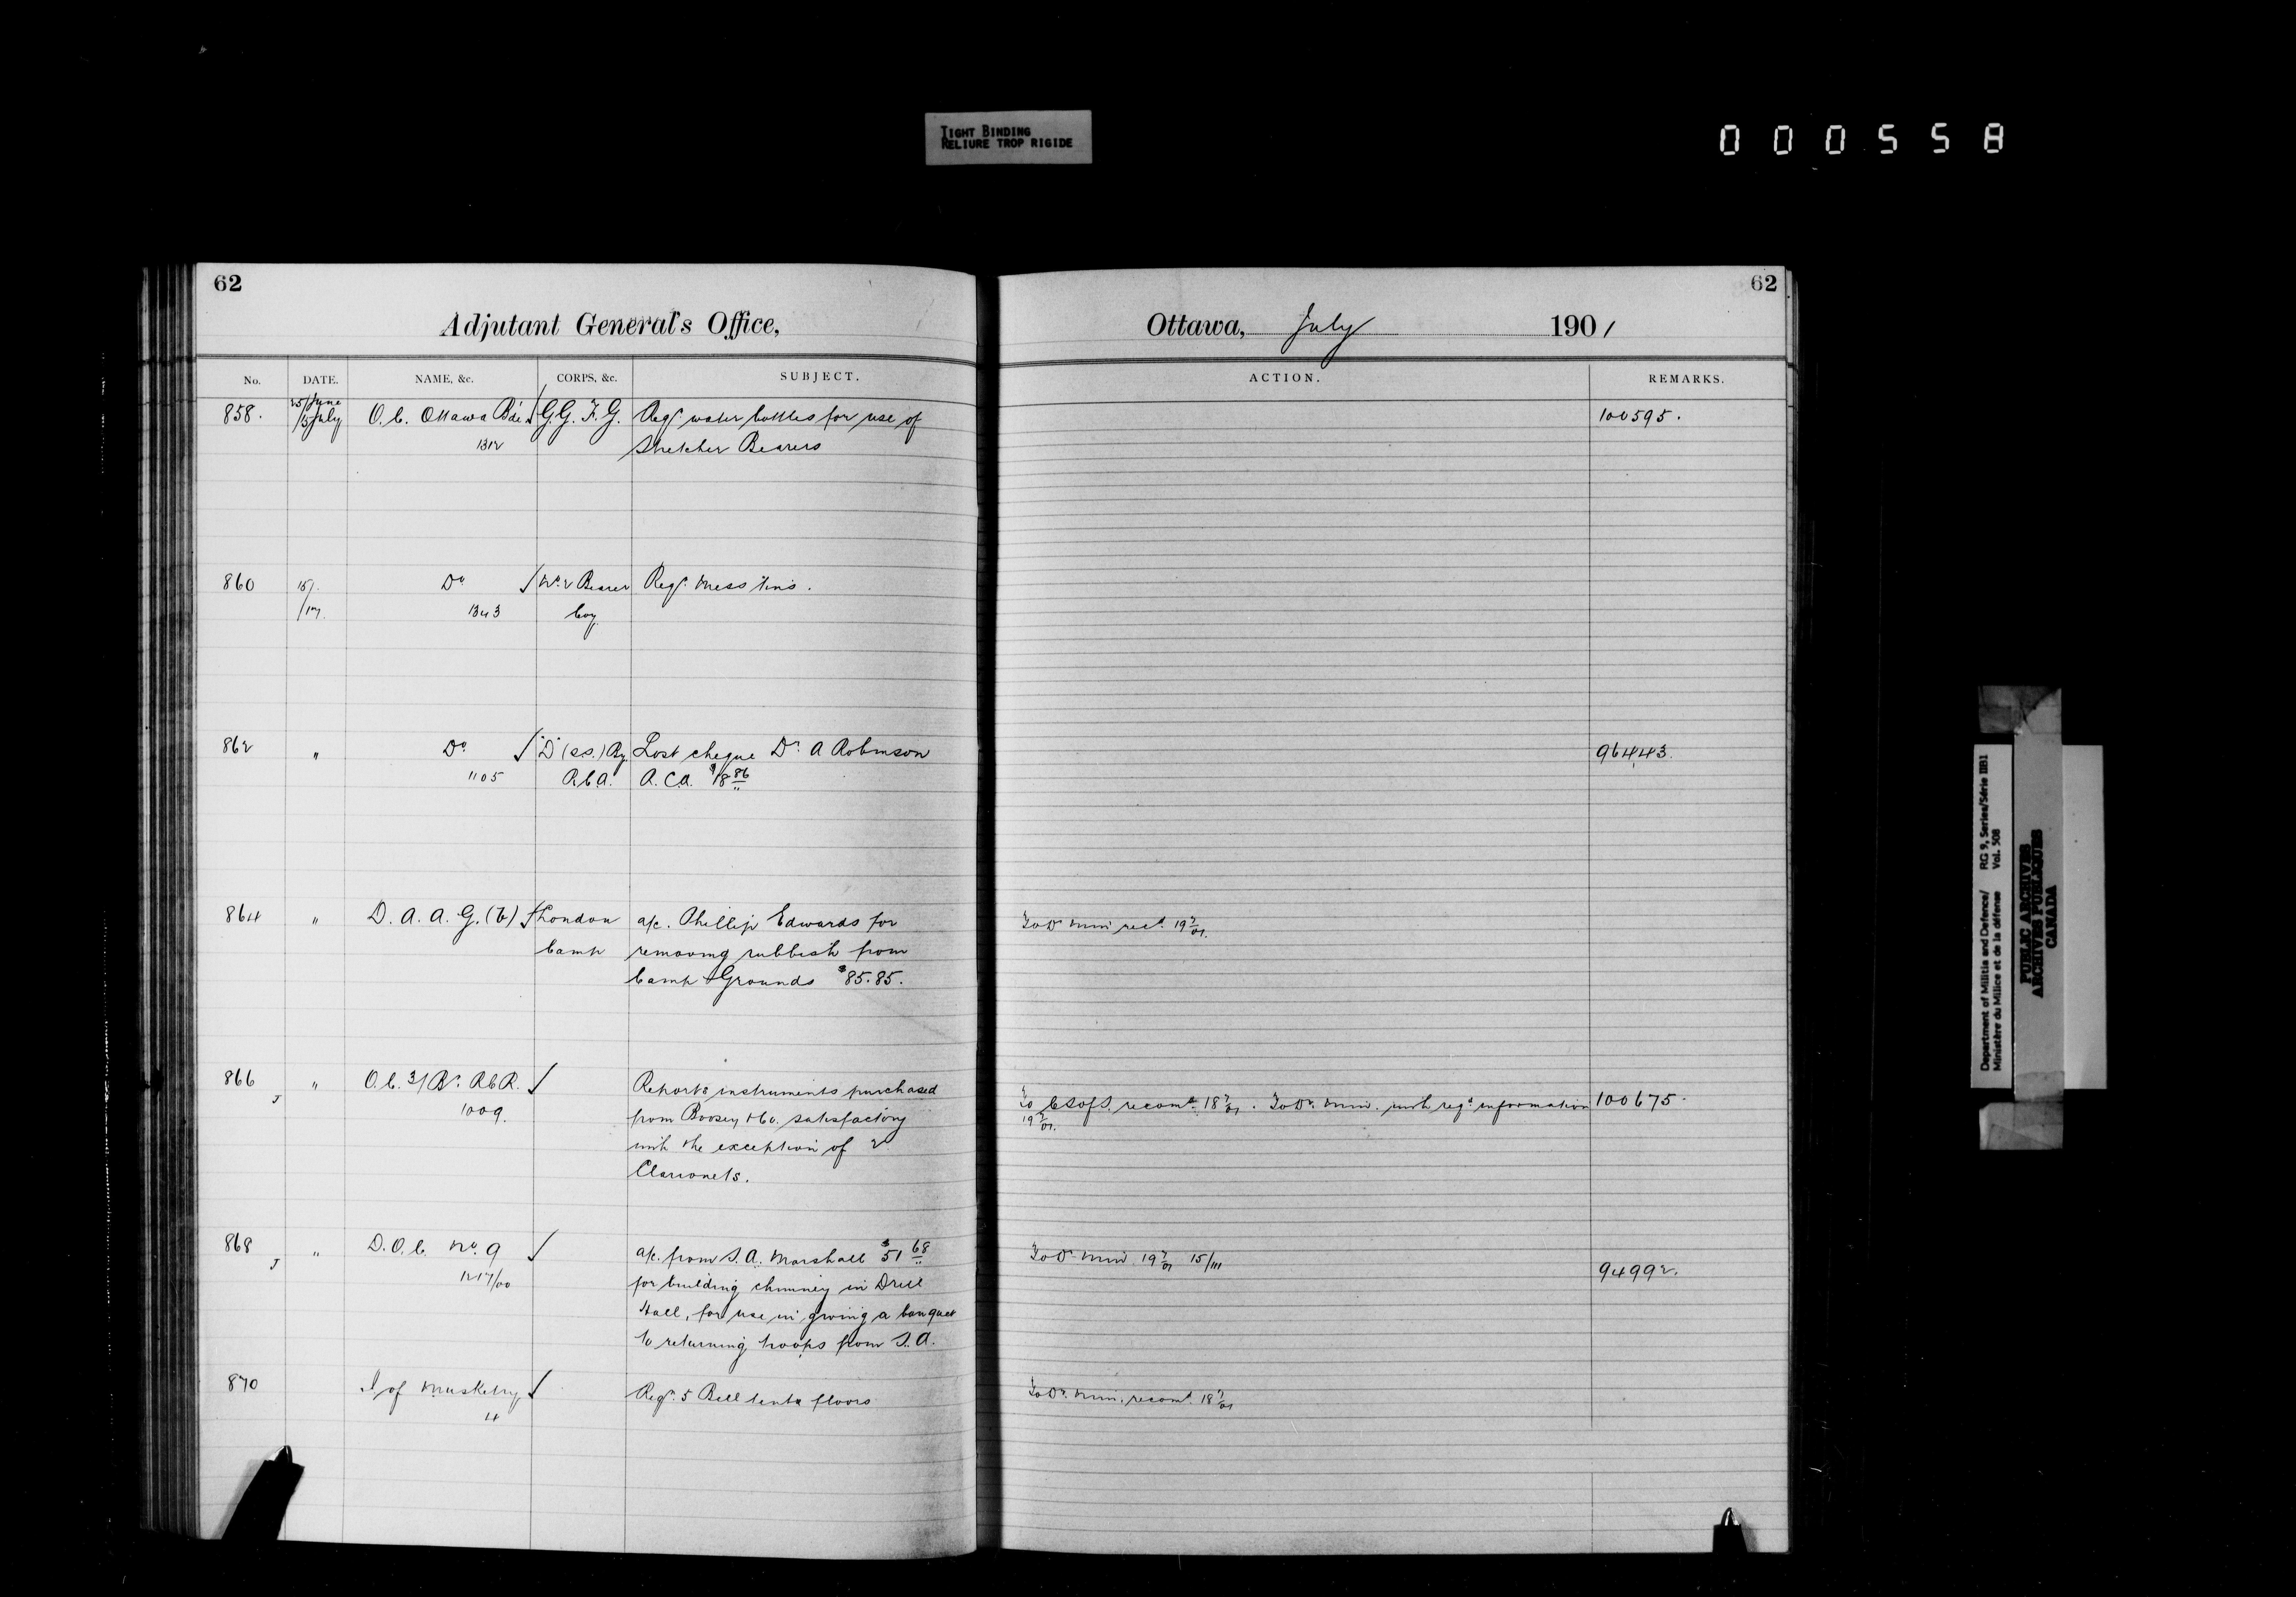 TIGHT BINDING
RELIURE TROP RIGIDE
000558
62
Adjutant General's Office,
No. DATE. NAME, &c. CORPS, &c. SUBJECT.
858. 25/June O.C. Ottawa Bde G.G.F.G. Reqs. water bottles for use of
/15 July 1312 Stretcher Bearers
860 15/. Do No. 2 Bearer Reqs. Mess tins.
/17. 1343 Coy.
862 " Do "D" (S.S.) By Lost cheque Dr. A Robinson
1105 R.C.A. R.C.A. $18 86
864 " D.A.A.G. London a/c. Phillip Edwards for
Camp removing rubbish from
Camp Grounds $85.85.
866 " O.C. 3/Bn. R.C.R. Reports instruments purchased
J 1009. from Boosey & Co. satisfactory
with the exception of 2
Clarionets.
868 " D.O.C. No. 9 a/c. from S.A. Marshall $51 68
J 1217/00 for building chimney in Drill
Hall, for use in giving a banquet
to returning troops from S.A.
870 I of Musketry Reqs. 5 Bell tents floors
4
62
Ottawa, July 1901
ACTION. REMARKS.
100595.
96443.
To Dr. Min rect. 19 7/01.
To C S of S. recomd. 18 7/01. To Dr. Min. with reqd. information 100675.
19 7/01.
To Dr. Min 19 7/01 15/111
94992.
To Dr. Min. recomd. 18 7/01
Department of Militia and Defence/ RG 9, Series/Série IIB1
Ministère du Milice et de la défense Vol. 508
PUBLIC ARCHIVES
ARCHIVES PUBLIQUES
CANADA